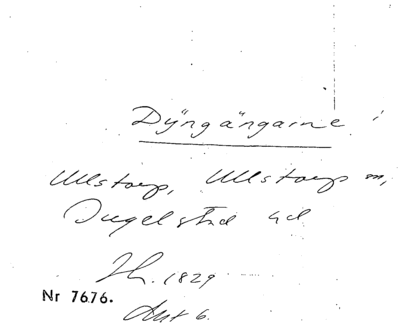 Dyngängarne
Ullstorp, Ullstorp sn,
Ingelstad hd
Th. 1829
Nr 7676.
Akt 6.